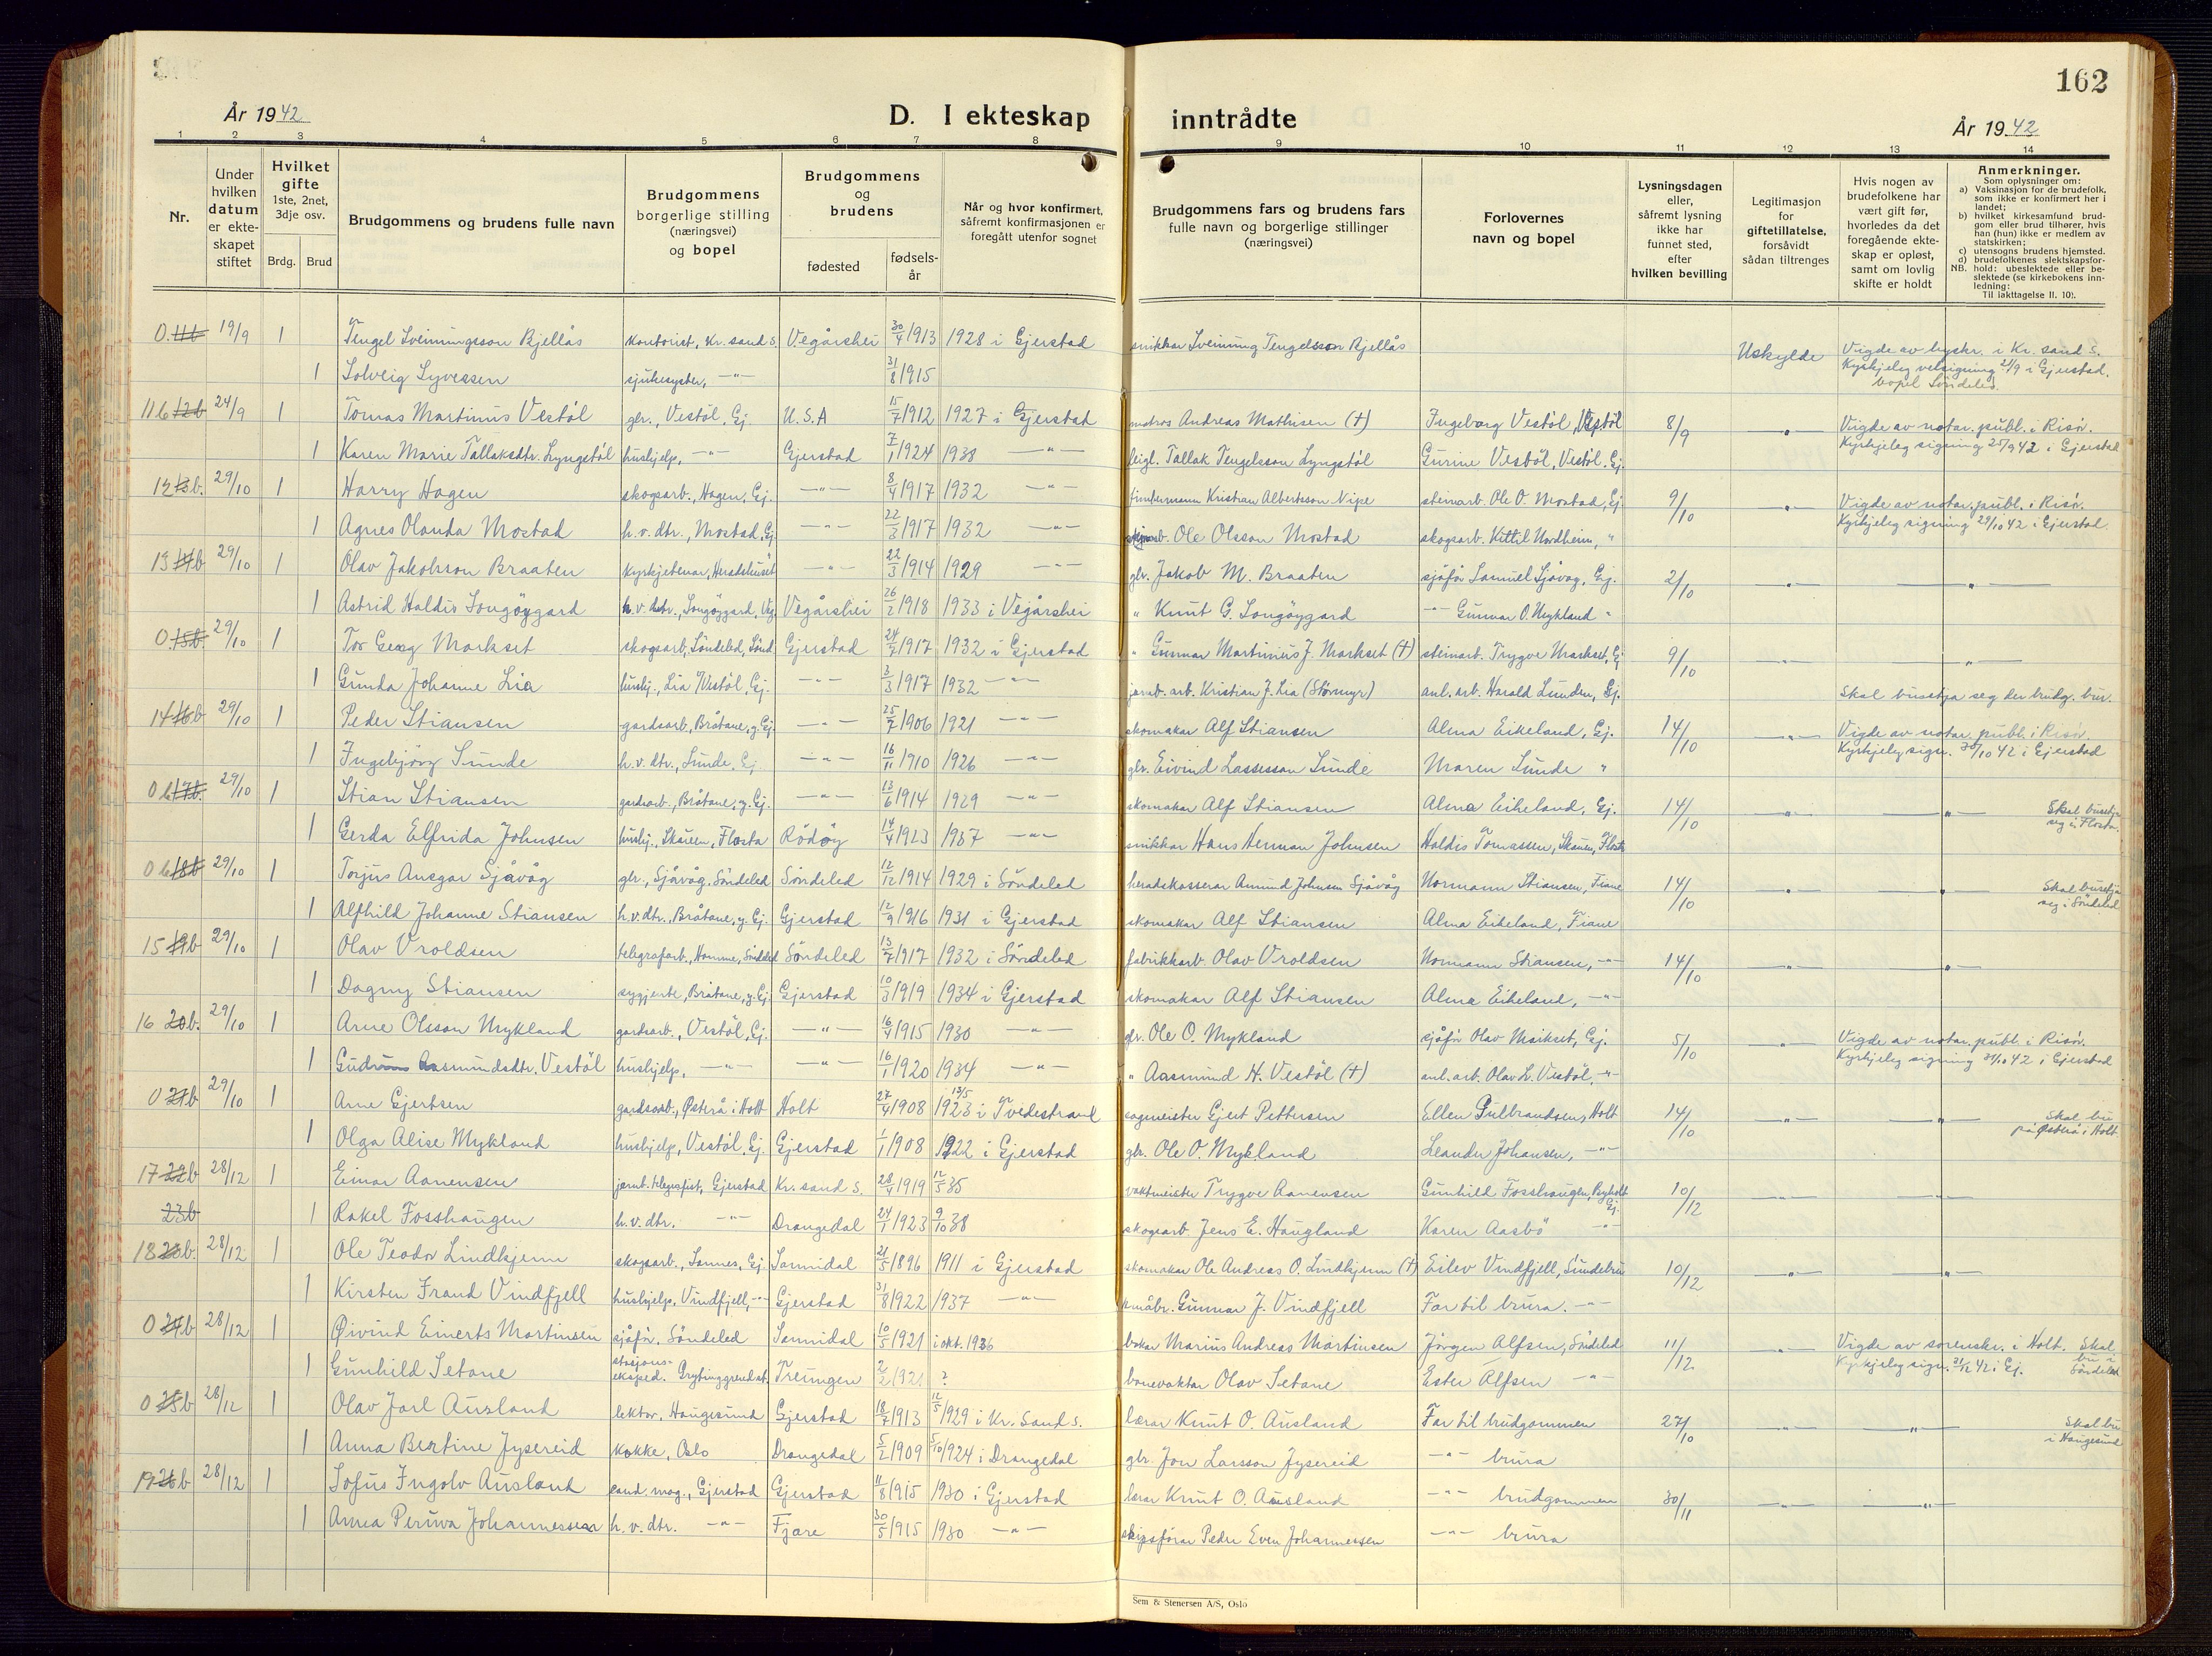 162
År 1942
D. I ekteskap inntrådte
År 1942
1 2 3 4 5 6 7 8 9 10 11 12 13 14
Nr.
Under hvilken datum er ekteskapet stiftet
Hvilket gifte 1ste, 2net, 3dje osv.
Brdg. Brud
Brudgommens og brudens fulle navn
Brudgommens borgerlige stilling (næringsvei) og bopel
Brudgommens og brudens
fødested
fødselsår
Når og hvor konfirmert, såfremt konfirmasjonen er foregått utenfor sognet
Brudgommens fars og brudens fars fulle navn og borgerlige stillinger (næringsvei)
Forlovernes navn og bopel
Lysningsdagen eller, såfremt lysning ikke har funnet sted, efter hvilken bevilling
Legitimasjon for giftetillatelse, forsåvidt sådan tiltrenges
Hvis nogen av brudefolkene har vært gift før, hvorledes da det foregående ekteskap er opløst, samt om lovlig skifte er holdt
Anmerkninger.
Som oplysninger om:
a) Vaksinasjon for de brudefolk, som ikke er konfirmert her i landet;
b) hvilket kirkesamfund brudgom eller brud tilhører, hvis han (hun) ikke er medlem av statskirken;
c) utensogns brudens hjemsted.
d) brudefolkenes slektskapsforhold: ubeslektede eller beslektede (se kirkebokens innledning:
NB.
Til iakttagelse II. 10).
0 11b 19/9 1 Tengel Sveinungsson Bjellås kontorist, Kr.sand S. Vegårshei 30/4 1913 1928 i Gjerstad snikkar Sveinung Tengelsson Bjellås Uskylde Vigde av byskr. i Kr. sand S.
1 Solveig Syvessen sjukesyster, -"- 31/8 1915 Kyrkjeleg velsigning 21/9 i Gjerstad. bopel Søndeled.
11b 12b 24/9 1 Tomas Martinus Vestøl gbr., Vestøl, Gj. U.S.A 15/7 1912 1927 i Gjerstad matros Andreas Mathisen (†) Ingeborg Vestøl, Vestøl 8/9 -"- Vigde av notar. publ. i Risør.
1 Karen Marie Tallaksdtr. Lyngstøl hushjelp, -"- Gjerstad 7/1 1924 1938 -"- leigl. Tallak Tengelsson Lyngstøl Gurine Vestøl, Vestøl, Gj. Kyrkjeleg signing 25/9 42 i Gjerstad
12 13b. 29/10 1 Harry Hagen skogsarb., Hagen, Gj. -"- 8/4 1917 1932 -"- tømtermann Kristian Albertsson Nipe steinarb. Ole O. Mostad, Gj 9/10 -"- Vigde av notar. publ. i Risør.
1 Agnes Olanda Mostad h.v. dtr., Mostad, Gj. -"- 22/3 1917 1932 -"- Ole Olsson Mostad skogsarb. Kittil Nordheim, " Kyrkjeleg signing 29/10 42 i Gjerstad.
13 14b 29/10 1 Olav Jakobsson Braaten kyrkjetenar, Heradshuset -"- 22/3 1914 1929 -"- gbr. Jakob M. Braaten sjåfør Samuel Sjåvåg, Gj. 2/10 -"- -"-
1 Astrid Haldis Songøygard h.v. dtr., Songøygard, Veg Vegårshei 26/2 1918 1933 i Vegårshei " Knut G. Songøygard -"- Gunnar O. Mykland "
0 15b. 29/10 1 Tor Georg Markset skogsarb, Søndeled, Sønd Gjerstad 24/7 1917 1932 i Gjerstad " Gunnar Martinius J. Markset (†) steinarb. Trygve Markset, Gj 9/10 -"- -"-
1 Gunda Johanne Lia hushj., Lia Vestøl, Gj. -"- 3/3 1917 1932 -"- jarnb. arb. Kristian J. Lia (Størmyr) anl. arb. Harald Lunden, Gj. Skal busetja seg der brudg. bur.
14 16b 29/10 1 Peder Stiansen gardsarb., Bråtane, y. Gj. -"- 25/7 1906 1921 -"- skomakar Alf Stiansen Alma Eikeland, Gj. 14/10 -"- Vigde av notar. publ. i Risør.
1 Ingebjørg Sunde h.v. dtr., Sunde, Gj. -"- 16/11 1910 1926 -"- gbr. Eivind Lassesson Sunde Maren Sunde " Kyrkjeleg sign. 30/10 42 i Gjerstad
0 b 17b. 29/10 1 Stian Stiansen gardsarb., Bråtane, y. Gj. -"- 13/6 1914 1929 -"- skomakar Alf Stiansen Alma Eikeland, Gj. 14/10 -"- -"- Skal busetja seg i Flosta.
1 Gerda Elfrida Johnsen hushj., Skåren, Flosta Rødøy 14/4 1923 1937 -"- snikkar Hans Herman Johnsen Haldis Tomassen, Skaren, Flosta
0 b 18b 29/10 1 Torjus Ansgar Sjåvåg gbr., Sjåvåg, Søndeled Søndeled 12/12 1914 1929 i Søndeled heradskasserar Amund Johnsen Sjåvåg Normann Stiansen, Fiane 14/10 -"- -"- Skal busetja seg i Søndeled
1 Alfhild Johanne Stiansen h.v. dtr., Bråtane, y. Gj. Gjerstad 12/9 1916 1931 i Gjerstad skomakar Alf Stiansen Alma Eikeland, Fiane
15 19b 29/10 1 Olav Vroldsen telegrafarb., Homme, Søndeled Søndeled 13/7 1917 1932 i Søndeled fabrikkarb. Olav Vroldsen Normann Stiansen, -"- 14/10 -"- -"-
1 Dagny Stiansen sygjente, Bråtane, y. Gj. Gjerstad 10/3 1919 1934 i Gjerstad skomakar Alf Stiansen Alma Eikeland, -"-
16 20b. 29/10 1 Arne Olsson Mykland gardsarb., Vestøl, Gj. -"- 16/4 1915 1930 -"- gbr. Ole O. Mykland sjåfør Olav Markset, Gj. 5/10 Vigde av notar. publ. i Risør.
1 Gudrun Aasmundsdtr. Vestøl hushjelp, -"- -"- 16/1 1920 1934 -"- " Aasmund H. Vestøl (†) anl. arb. Olav L. Vestøl, -"- Kyrkjeleg signing 31/10 42 i Gjerstad
0 21b 29/10 1 Arne Gjertsen gardsarb., Østerå i Holt Holt 27/4 1908 13/5 1923 i Tvedestrand sagmeister Gjert Pettersen Ellen Gulbrandsen, Holt 14/10 -"- -"- Skal bu på Østerå i Holt
1 Olga Alise Mykland hushjelp, Vestøl, Gj. Gjerstad 1/1 1908 1922 i Gjerstad gbr. Ole O. Mykland Leander Johansen, -"-
17 22b 28/12 1 Einar Aanensen jarnb. telegrafist, Gjerstad Kr.sand S. 28/4 1919 12/5 35 vaktmeister Trygve Aanensen Gunhild Fosshaugen, Gj. 10/12 -"- -"-
23b 1 Rakel Fosshaugen h.v. dtr. -"- Drangedal 24/1 1923 9/10 38 skogsarb. Jens E. Haugland Karen Aasbø -"-
18 23b. 28/12 1 Ole Teodor Lindkjenn skogsarb., Sannes, Gj. Sannidal 21/5 1896 1911 i Gjerstad skomakar Ole Andreas O. Lindkjenn (†) Eilev Vindfjell, Sundebru 10/12 -"- -"-
1 Kirsten Frand Vindfjell hushjelp, Vindfjell, -"- Gjerstad 31/8 1922 1937 -"- småbr. Gunnar J. Vindfjell Far til brura. -"-
0 24b 28/12 1 Øivind Einerts Martinsen sjåfør. Søndeled Sannidal 10/5 1921 i okt. 1936 bakar Marius Andreas Martinsen Jørgen Alfsen, Søndeled 11/12. -"- Vigde av sorenskr. i Holt. Skal bu i Søndeled
1 Gunhild Setane stasjonseksped. Grytinggrend st. Treungen 2/2 1921 ? banevaktar Olav Setane Ester Alfsen -"- Kyrkjeleg sign. 31/12 42 i Gj.
0 25b 28/12 1 Olav Jarl Ausland lektor, Haugesund Gjerstad 18/7 1913 12/5 1929 i Kr. Sand S. lærar Knut O. Ausland Far til brudgommen 27/10 -"- -"- Skal bu i Haugesund
1 Anna Bertine Jysereid kokke, Oslo Drangedal 5/2 1909 5/10 1924 i Drangedal gbr. Jon Larsson Jysereid -"- brura
19 26b 28/12 1 Sofus Ingolv Ausland cand. mag., Gjerstad Gjerstad 11/8 1915 1930 i Gjerstad lærar Knut O. Ausland -"- brudgommen 30/11 -"- -"-
1 Anna Peruva Johannessen h.v. dtr. -"- Fjære 30/5 1915 1930 -"- skipsførar Peder Even Johannessen -"- brura
Sem & Stenersen A/S, Oslo